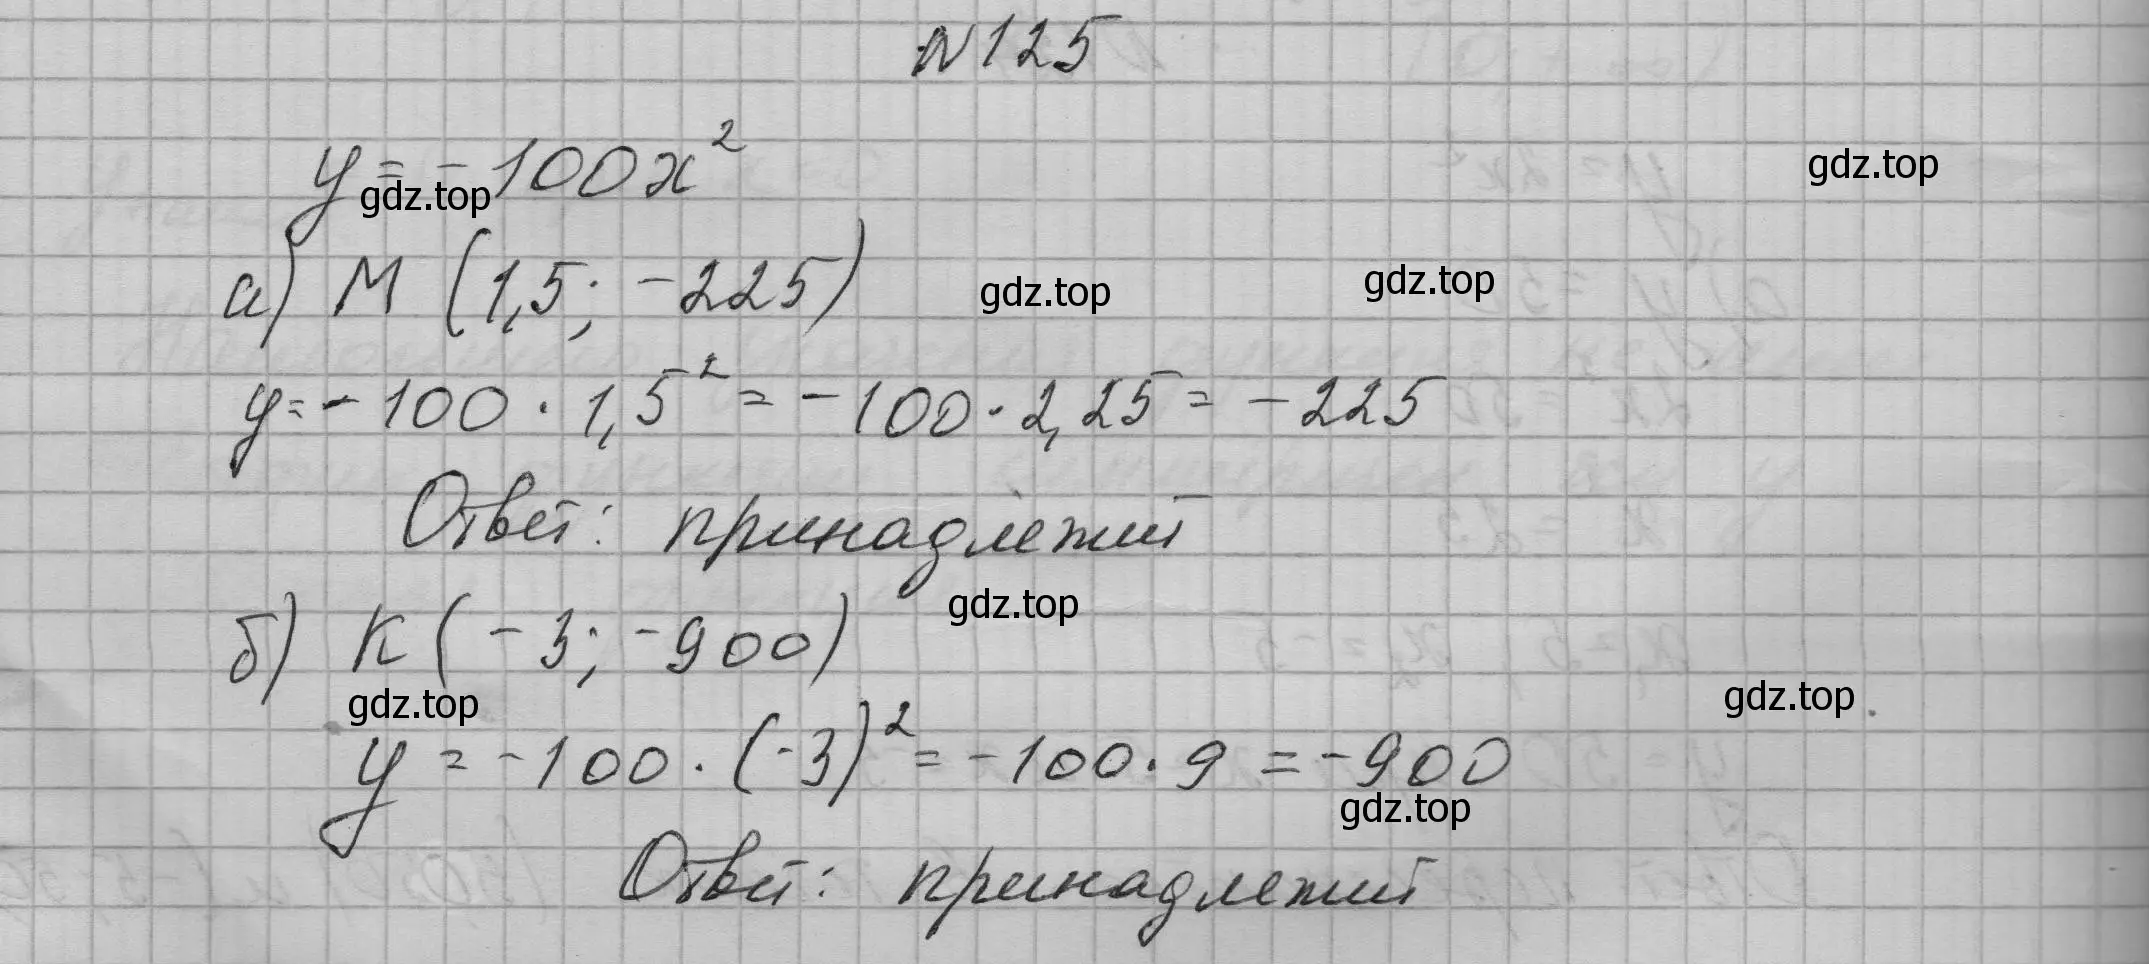 №125
y = -100x²
gdz.top
gdz.top
а) М (1,5; -225)
gdz.top
gdz.top
y = -100 · 1,5² = -100 · 2,25 = -225
Ответ: принадлежит
б) К (-3; -900)
gdz.top
gdz.top
gdz.top
y = -100 · (-3)² = -100 · 9 = -900
gdz.top
Ответ: принадлежит